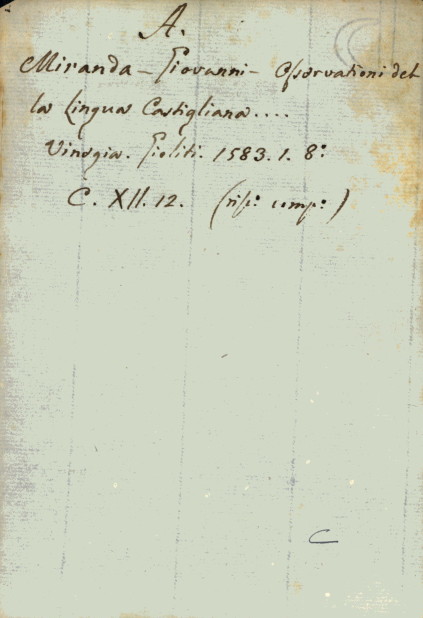 A.
Miranda - Giovanni - Osservationi del
la Lingua Castigliana....
Vinegia. Gioliti. 1583. 1. 8º
C. XII. 12. (risp: comp:)
C